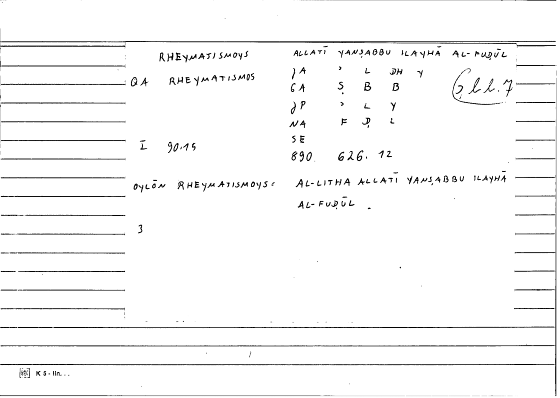 RHEYMATISMOYS ALLATĪ YANṢABBU ILAYHĀ AL-FUḌŪL
QA RHEYMATISMOS JA ʾ L DH Y
GA Ṣ B B
JP ʾ L Y
NA F Ḍ L
SE
I 90.15 890 626.12
OYLŌN RHEYMATISMOYS: AL-LITHA ALLATĪ YANṢABBU ILAYHĀ
AL-FUḌŪL.
3
K 5 - lin...